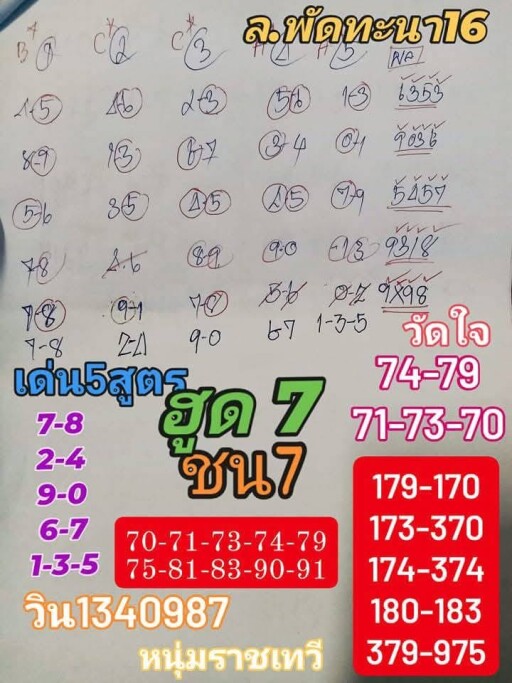 ล.พัดทะนา16
B 1 C 2 C 3 A 4 A 5
4-5 4-6 2-3 5-6 1-3 6353
8-9 1-3 6-7 3-4 0-1 9036
5-6 3-5 4-5 4-5 7-9 5457
7-8 4-6 8-9 9-0 1-3 9318
7-8 9-1 7-8 5-6 0-2 9898
7-8 2-4 9-0 6-7 1-3-5
วัดใจ
74-79
71-73-70
เด่น5สูตร
7-8
2-4
9-0
6-7
1-3-5
ฮูด 7
ชน7
70-71-73-74-79
75-81-83-90-91
179-170
173-370
174-374
180-183
379-975
วิน1340987
หนุ่มราชเทวี